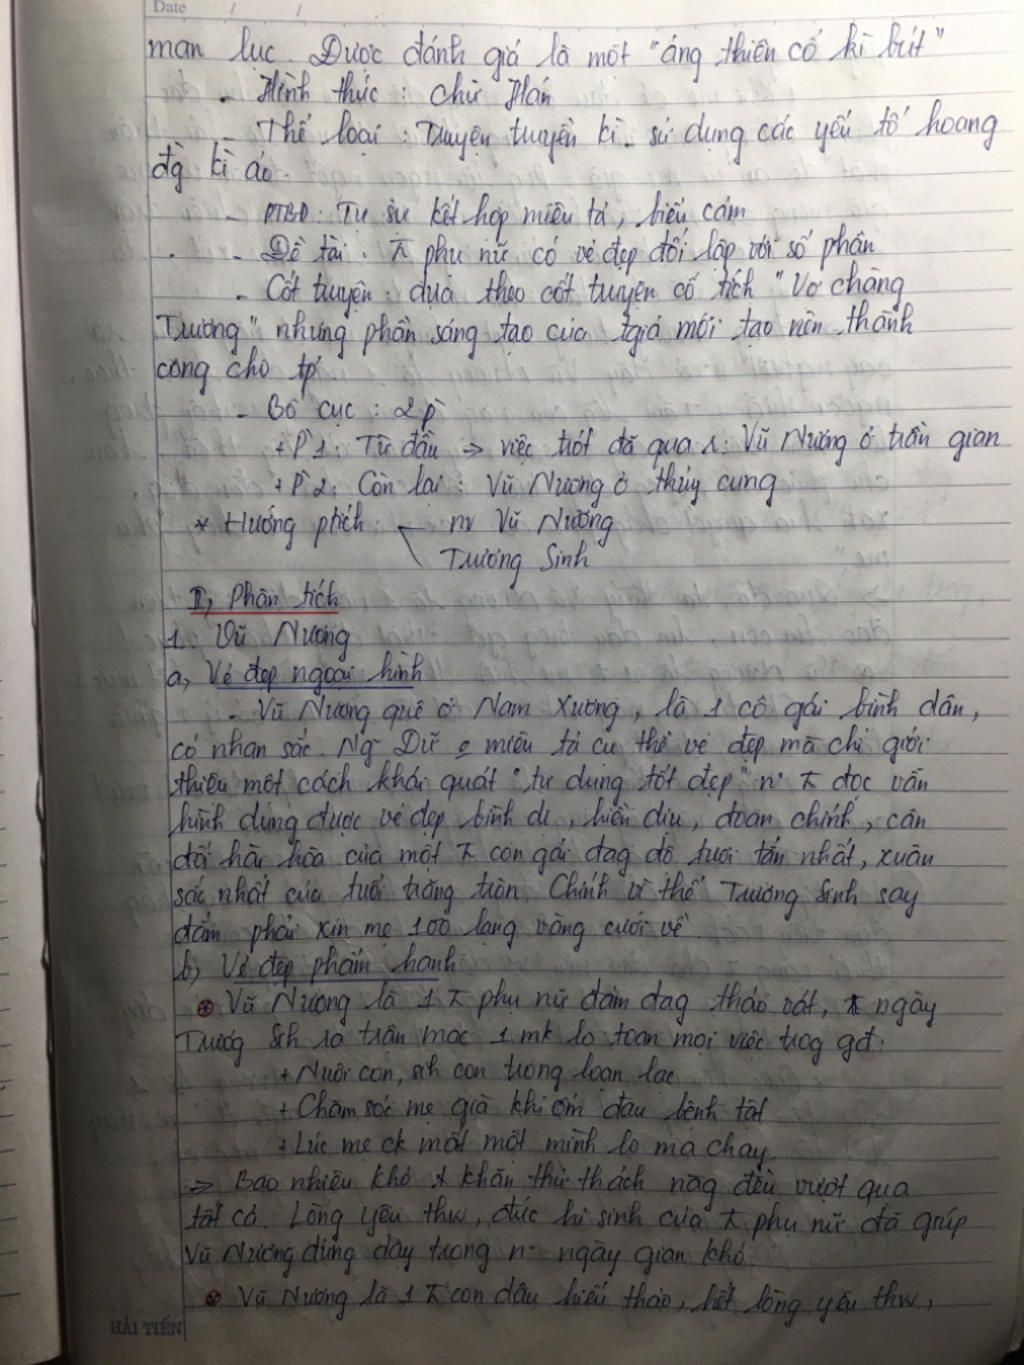 Date / /
mạn lục. Được đánh giá là một "áng thiên cổ kì bút"
- Hình thức : chữ Hán
- Thể loại : Truyện truyền kì - sử dụng các yếu tố hoang
đg kì ảo.
- PTBĐ : Tự sự kết hợp miêu tả, biểu cảm
- Đề tài : phụ nữ có vẻ đẹp đối lập với số phận
- Cốt truyện : dựa theo cốt truyện cổ tích "Vợ chàng
Trương" nhưng phần sáng tạo của tgiả mới tạo nên thành
công cho tp
- Bố cục : 2 p
+ P 1 : Từ đầu => việc trót đã qua : Vũ Nương ở trần gian
+ P 2 : Còn lại : Vũ Nương ở thủy cung
* Hướng ptích nv Vũ Nương
Trương Sinh
II, Phân tích
1. Vũ Nương
a, Vẻ đẹp ngoại hình
- Vũ Nương quê ở Nam Xương, là 1 cô gái bình dân,
có nhan sắc. Ng Dữ miêu tả cụ thể vẻ đẹp mà chỉ giới
thiệu một cách khái quát "tư dung tốt đẹp" đọc vẫn
hình dung được vẻ đẹp bình dị, hiền dịu, đoan chính, cân
đối hài hòa của một con gái đag độ tươi tắn nhất, xuân
sắc nhất của tuổi trăng tròn. Chính vì thế Trương Sinh say
đắm phải xin mẹ 100 lạng vàng cưới về
b, Vẻ đẹp phẩm hạnh
Vũ Nương là 1 phụ nữ đảm đag tháo vát, ngày
Trươg Sih ra trận mạc 1 mk lo toan mọi việc trog gđ:
+ Nuôi con, sih con trong loạn lạc
+ Chăm sóc mẹ già khi ốm đau bệnh tật
+ Lúc mẹ ck mất một mình lo ma chay
=> Bao nhiêu khó khăn thử thách nàg đều vượt qua
tất cả. Lòng yêu thw, đức hi sinh của phụ nữ đã giúp
Vũ Nương đứng dậy trong ngày gian khó.
Vũ Nương là 1 con dâu hiếu thảo, hết lòng yêu thw,
HẢI TIẾN